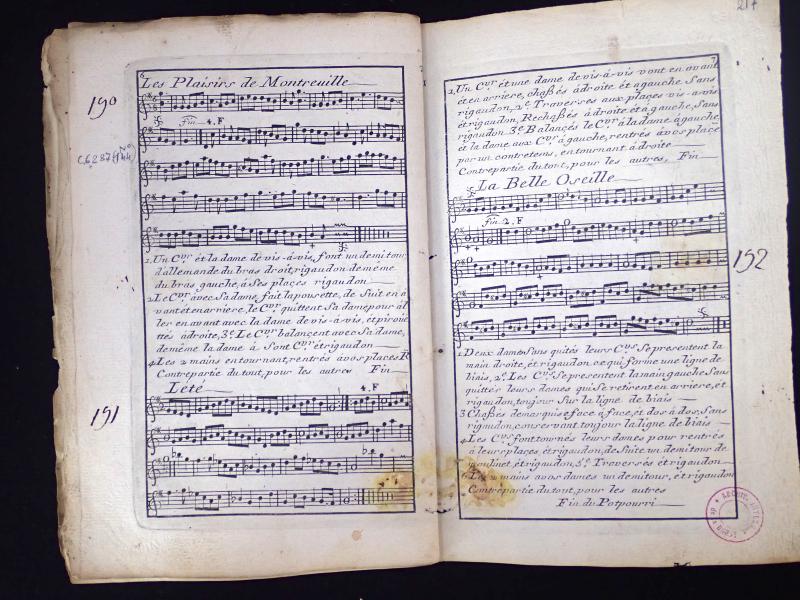 6
Les Plaisirs de Montreuille
190
Fin 4. F
C6287(144)
1. Un Cvr. et la dame de vis-à-vis, font un demi tour
d'allemande du bras droit, rigaudon de meme
du bras gauche, à ses plaçes rigaudon
2. Le Cvr. avec sa dame, fait la pousette, de suit en a
vant et en arriere, le Cvr. quittent sa dame pour al
ler en avant avec la dame de vis-à-vis, et piroüe
ttés à droite, 3e. Le Cvr. balançent avec sa dame,
de même la dame à sont Cvr. et rigaudon
4. Les 2 mains en tournant, rentrès àvos plaçes R
Contrepartie du tout, pour les autres Fin
Leté
4. F
191
217
7
1. Un Cvr. ét une dame de vis-à-vis vont en avant
ét en arriere, chaßés à droite ét à gauche, Sans
rigaudon, 2e. Traverses aux plaçes vis-a-vis
ét rigaudon, Rechaßés à droite ét à gauche, Sans
rigaudon 3e. Balançés le Cvr. à la dame à gauche,
ét la dame aux Cvr. à gauche, rentrés àvos plaçe
par un contretems, en tournant à droite
Contrepartie du tout, pour les autres, Fin
La Belle Oseille
Fin 2. F
192
1. Deux dames Sans quités leurs Cvrs. Se presentent la
main droite, ét rigaudon çe qui forme une ligne de
biais, 2e. Les Cvrs. Se presentent la main gauche Sans
quittér leurs dames qui Se retirent en arriere, ét
rigaudon, toujour Sur la ligne de biais
3 Chaßés demarquise façe à façe, ét dos à dos, Sans
rigaudon, conservant toujour la ligne de biais
4. Les Cvrs. font tournés leurs dames pour rentrés
à leurs plaçes, ét rigaudon, de Suite un demi tour de
moulinet, ét rigaudon, 5e. Traversés ét rigaudon
6. Les 2 mains avos dames un demi tour, ét rigaudon
Contrepartie du tout, pour les autres
Fin du Potpourri